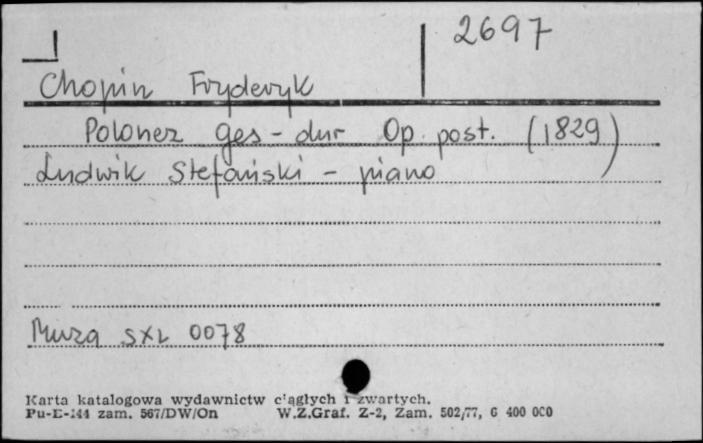 2697
Chopin Fryderyk
Polonez ges-dur Op. post. (1829)
Ludwik Stefański - piano
Muza SXL 0078
Karta katalogowa wydawnictw ciągłych i zwartych.
Pu-E-144 zam. 567/DW/On W.Z.Graf. Z-2, Zam. 502/77, G 400 000